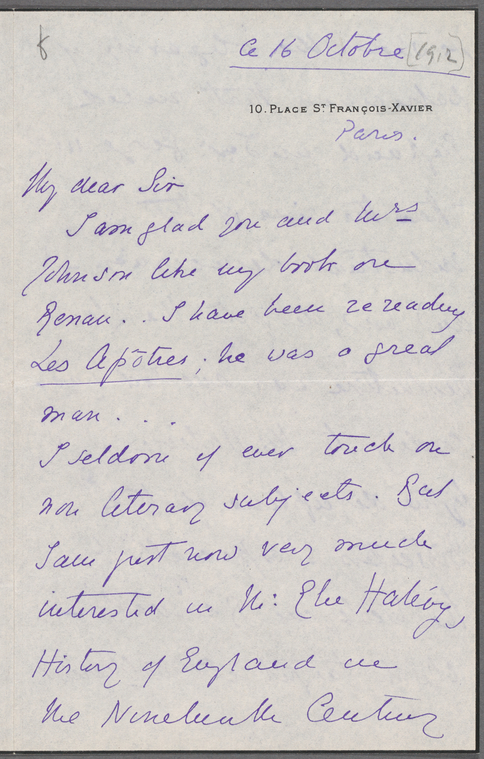 ce 16 Octobre [1912]
10. PLACE ST FRANÇOIS-XAVIER
Paris.
My dear Sir
I am glad you and Mrs
Johnson like my book on
Renan.. I have been rereading
Les Apôtres; he was a great
man . . .
I seldom if ever touch on
non literary subjects. But
I am just now very much
interested in M: Elie Halévy,
History of England in
the Nineteenth Century